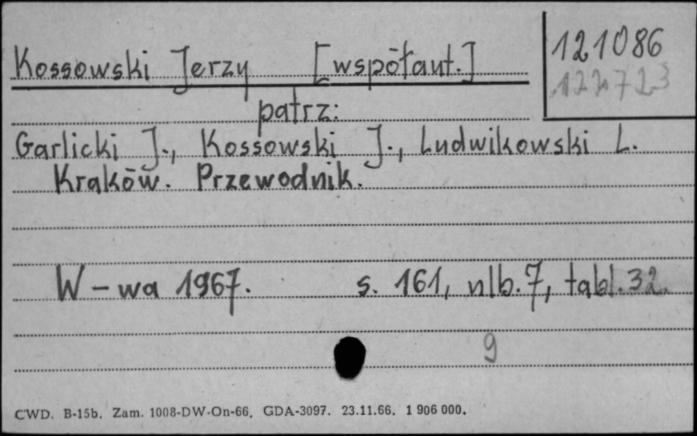 121086
122723
Kossowski Jerzy [współaut.]
patrz:
Garlicki J., Kossowski J., Ludwikowski L.
Kraków. Przewodnik.
W-wa 1967. s. 161, nlb. 7, tabl. 32.
9
CWD. B-15b. Zam. 1008-DW-On-66. GDA-3097. 23.11.66. 1 906 000.